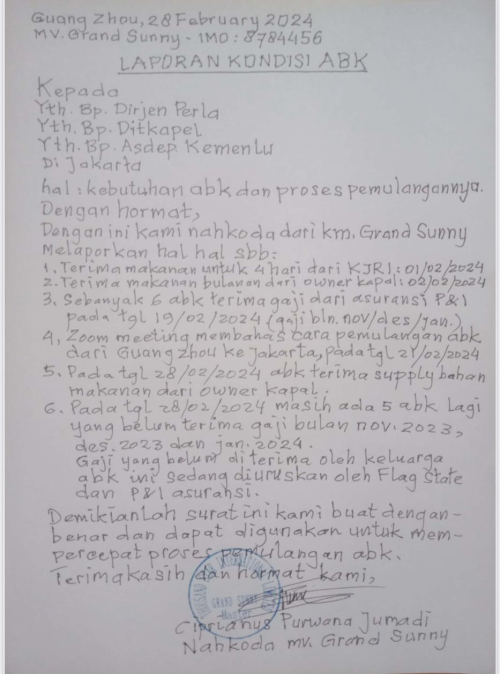 Guang Zhou, 28 February 2024
MV. Grand Sunny - IMO : 8784456
LAPORAN KONDISI ABK
Kepada
Yth. Bp. Dirjen Perla
Yth. Bp. Ditkapel
Yth. Bp. Asdep Kemenlu
Di Jakarta
hal : kebutuhan abk dan proses pemulangannya.
Dengan hormat,
Dengan ini kami nahkoda dari km. Grand Sunny
Melaporkan hal hal sbb:
1. Terima makanan untuk 4 hari dari KJRI : 01/02/2024
2. Terima makanan bulanan dari owner kapal : 02/02/2024
3. Sebanyak 6 abk terima gaji dari asuransi P&I
pada tgl 19/02/2024 (gaji bln. nov/des/jan.)
4. Zoom meeting membahas cara pemulangan abk
dari Guang zhou ke Jakarta, pada tgl 27/02/2024
5. Pada tgl 28/02/2024 abk terima supply bahan
makanan dari owner kapal.
6. Pada tgl 28/02/2024 masih ada 5 abk lagi
yang belum terima gaji bulan nov. 2023,
des. 2023 dan jan. 2024.
Gaji yang belum di terima oleh keluarga
abk ini sedang diuruskan oleh Flag State
dan P&I asuransi.
Demikianlah surat ini kami buat dengan-
benar dan dapat digunakan untuk mem-
percepat proses pemulangan abk.
Terimakasih dan hormat kami,
GRAND SUNNY
Master
Ciprianus Purwana Jumadi
Nahkoda mv. Grand Sunny